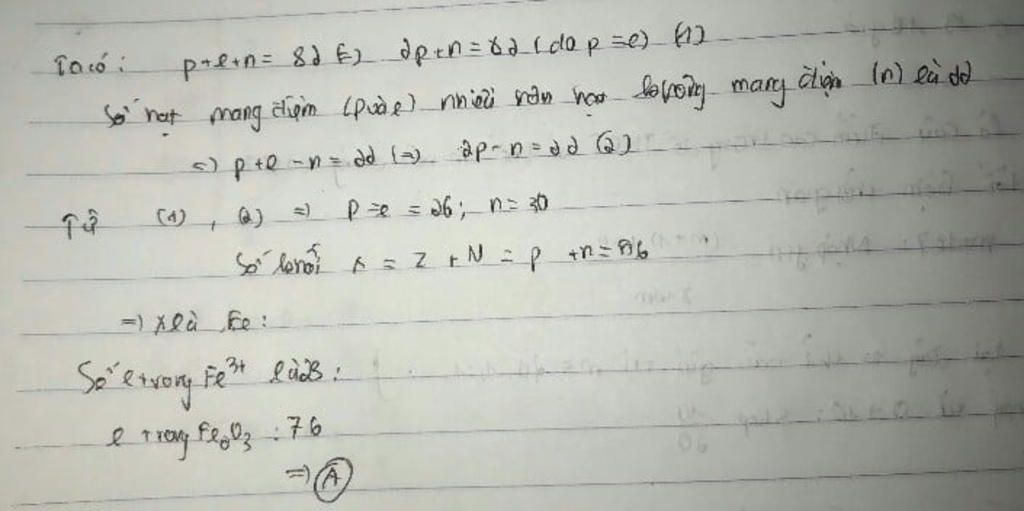 Ta có: p+e+n = 82 (=) 2p+n = 82 (do p=e) (1)
Số hạt mang điện (p và e) nhiều hơn hạt không mang điện (n) là 22
=) p+e-n = 22 (=) 2p-n=22 (2)
Từ (1), (2) =) p=e=26; n=30
Số khối A = Z + N = p + n = 56
=) X là Fe:
Số e trong Fe³⁺ là 23:
e trong Fe₂O₃ : 76
=) A